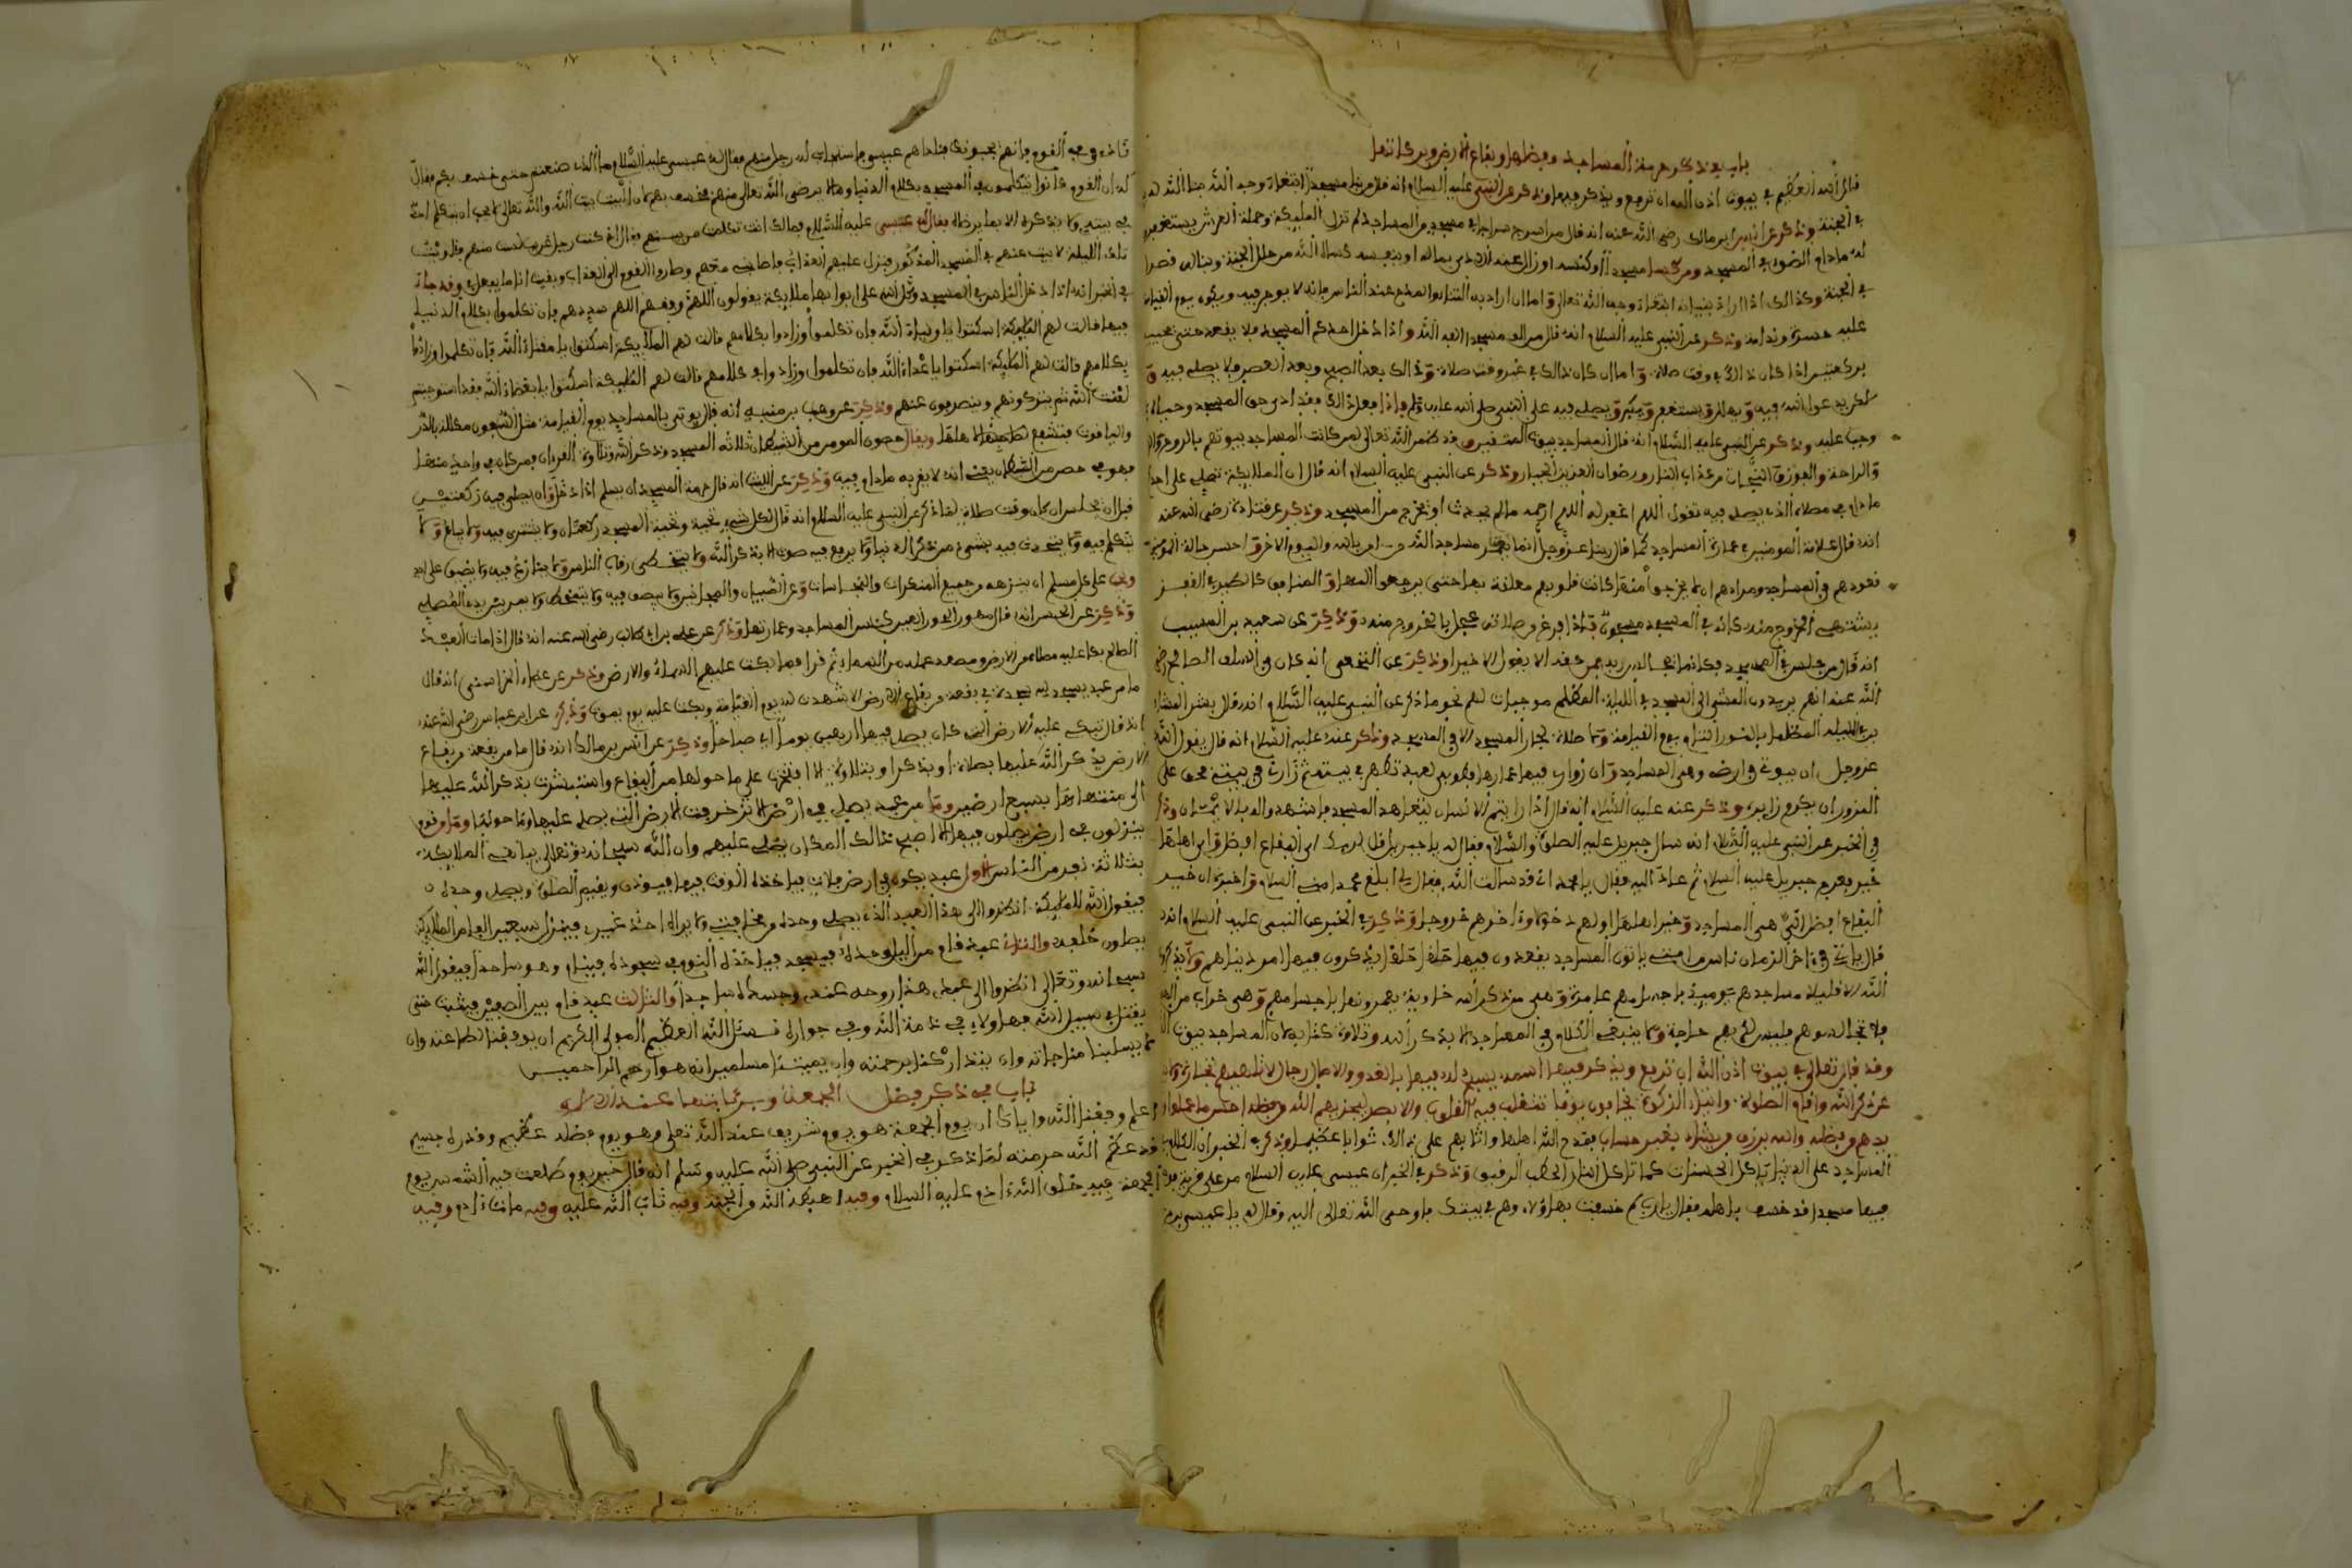 باب في ذكر حرمة المساجد وفضلها وبقاع الارض وبركاتها
قال الله العظيم في بيوت اذن الله ان ترفع ويذكر فيها وذكر عن النبي عليه السلام انه قال من بنا مسجدا ابتغاء وجه الله بنا الله له
في الجنة وذكر عن انس ابن مالك رضي الله عنه انه قال من اسرج سراجا في مسجد من المساجد لم تزل الملايكة وحملة العرش يستغفرون
له ما دام الضوء في المسجد ومن كسا مسجدا او كنسه او زال عنه الاذى بماله او بنفسه كساه الله من حلل الجنة وبنا له قصرا
في الجنة وكذالك اذا اراد ببنيانه ابتغاء وجه الله تعالى واما ان اراد به الثناء والمدح عند الناس فانه لا يوجر فيه ويكون يوم القيامة
عليه حسرة وندامة وذكر عن النبي عليه السلام انه قال من الف مسجدا الفه الله واذا دخل احدكم المسجد فلا يقعد حتى يحييه
بركعتين اذا كان ذالك في وقت صلاة واما ان كان ذالك في غير وقت صلاة وذالك بعد الصبح وبعد العصر فلا يصلي فيه و
لكن يدعوا الله فيه ويهلل ويستغفر ويكبر ويصلي فيه على النبي صلى الله عليه وسلم فاذا فعل ذالك فقد ادى حق المسجد وحياه
وجب عليه وذكر عن النبي عليه السلام انه قال المساجد بيوت المتقين وقد ضمن الله تعالى لمن كانت المساجد بيوتهم بالروح
والراحة والفوز والنجاة من عذاب النار ورضوان العزيز الجبار وذكر عن النبي عليه السلام انه قال ان الملايكة تصلي على احد
ما دام في مصلاه الذي يصلي فيه تقول اللهم اغفر له اللهم ارحمه مالم يحدث او يخرج من المسجد وذكر عن قتادة رضي الله عنه
انه قال علامة المومنين عمارة المساجد كما قال ربنا عز وجل انما يعمر مساجد الله من امن بالله واليوم الاخر واحسن حالة المومن
قعودهم في المساجد ومرادهم ان لا يخرجوا منها كانت قلوبهم معلقة بها حتى يرجعوا اليها والمنافق كالطير في القفز
يشتهي الخروج منه كانه في المسجد مسجون فاذا فرغ من صلاته عجل بالخروج منه وذكر عن سعيد بن المسيب
انه قال من جلس في المسجد فكانما يجالس ربه فمن حقه الا يقول الا خيرا وذكر عن النخعي انه كان في السلف الصالح رضي
الله عنه انهم يريدون المشي الى المسجد في الليلة المظلم موجبات لهم نحو ما ذكر عن النبي عليه السلام انه قال بشر المشاء
بن بالليلة المظلمة بالنور التام يوم القيامة ولا صلاة لجار المسجد الا في المسجد وذكر عنه عليه السلام انه قال يقول الله
عز وجل ان بيوتي في ارضي وهي المساجد وان زواري فيها عمارها فطوبى لعبد تطهر في بيته ثم زارني في بيتي فحق على
المزور ان يكرم زايره وذكر عنه عليه السلام انه قال اذا رايتم الانسان يتعاهد المسجد فاشهدوا له بالايمان
في الخبر عن النبي عليه السلام انه سال جبريل عليه الصلاة والسلام فقال له يا جبريل قل لربك اي البقاع افضل واي اهلها
خير فعرج جبريل عليه السلام ثم عاد اليه فقال يا محمد اني قد سالت الله فقال لي ابلغ محمدا مني السلام واخبره ان خير
البقاع افضل التي هي المساجد وخير اهلها اولهم دخولا واخرهم خروجا وذكر في الخبر عن النبي عليه السلام انه
قال ياتي في اخر الزمان ناس من امتي ياتون المساجد يقعدون فيها حلقا حلقا يذكرون فيها امور دنياهم ولا يذكرون
الله الا قليلا مساجدهم يوميذ باجسامهم عامرة وهي من ذكر الله خاوية يعمرونها باجسامهم وهي خراب من
فلا تجالسوهم فليس لله بهم حاجة ولا ينبغي الكلام في المساجد الا بذكر الله وتلاوة كتابه لان المساجد بيوت الله
وقد قال تعالى في بيوت اذن الله ان ترفع ويذكر فيها اسمه يسبح له فيها بالغدو والاصال رجال لا تلهيهم تجارة ولا
عن ذكر الله واقام الصلوة وايتاء الزكوة يخافون يوما تتقلب فيه القلوب والابصار ليجزيهم الله احسن ما عملوا
يدهم من فضله والله يرزق من يشاء بغير حساب فمدح الله اهلها واثابهم على ذالك ثوابا عظيما وذكر في الخبر ان الكلام
المساجد على الدنيا ياكل الحسنات كما تاكل النار الحطب الرقيق وذكر في الخبر ان عيسى عليه السلام مر على قرية
فيها مسجد قد خسف باهله فقال يا رب لم خسفت بهاولاء وهم في بيتك فاوحى الله تعالى اليه وقال له يا عيسى بن
ناد في القوم فانهم يجيبونك فناداهم عيسى فاستجاب له رجل منهم فقال له عيسى عليه السلام ما الذي صنعتم حتى خسف بكم فقال
له ان القوم كانوا يتكلمون في المسجد بكلام الدنيا وهذا لا يرضى الله تعالى منهم فخسف بهم لان البيت بيت الله والله تعالى لا يحب ان يتكلم احد
في بيته ولا يذكره الا بما يرضاه فقال له عيسى عليه السلام فمالك انت تكلمت من بينهم فقال اني كنت رجل غريب لست منهم
تلك الليلة لا بيت عندهم في المسجد المذكور فنزل عليهم العذاب فاصابني معهم وصاروا القوم الى العذاب وبقيت انا ما يفعل بي وقد جاء
في الخبر انه اذا دخل الناس في المسجد وكل الله على ابوابها ملايكة يقولون اللهم وفقهم اللهم سددهم فان تكلموا بكلام الدنيا
فيها قالت لهم الملايكة اسكتوا يا اولياء الله فان تكلموا وزادوا بكلامهم قالت لهم الملايكة اسكتوا يا مقتاء الله فان تكلموا وزادوا
بكلامهم قالت لهم الملايكة اسكتوا يا اعداء الله فان تكلموا وزادوا في كلامهم قالت لهم الملايكة اسكتوا يا بغضاء الله فقد استوجبتم
لعنت الله ثم يتركونهم وينصرفون عنهم وذكر عن وهب بن منبه انه قال يوتى بالمساجد يوم القيامة مثل السفن مكللة بالدر
والياقوت فتشفع لاهلها ويقال حصون المومن من الشيطان ثلاثة المسجد وذكر الله وتلاوة القرءان فمن كان في واحدة منها
فهو في حصن من الشيطان يعني انه لا يقربه ما دام فيه وذكر عن الليث انه قال حرمة المسجد ان يسلم اذا دخل وان يصلي فيه ركعتين
قبل ان يجلس ان كان وقت صلاة لما ذكر عن النبي عليه السلام انه قال لكل شيء تحية وتحية المسجد ركعتان ولا يشترى فيه ولا يباع ولا
يتكلم فيه ولا يتحدث فيه بشيء من ذكر الدنيا ولا يرفع فيه صوت الا بذكر الله ولا يتخطى رقاب الناس ولا يتنازع فيه ولا يضيق على احد
وجب على كل مسلم ان ينزهه من جميع المنكرات والنجاسات وعن الصبيان والمجانين ولا يبصق فيه ولا يتمخط ولا يمر بين يدي المصلي
وذكر عن الحسن انه قال مهور الحور العين كنس المساجد وعمارتها وذكر عن علي بن ابي طالب رضي الله عنه انه قال اذا مات العبد
الصالح بكا عليه مصلاه من الارض ومصعد عمله من السماء ثم قرا فما بكت عليهم السماء والارض وذكر عن عطاء الخراساني انه قال
ما من عبد يسجد لله سجدة في بقعة من بقاع الارض الا شهدت له يوم القيامة وبكت عليه يوم يموت وذكر عن ابن عباس رضي الله عنه
انه قال تبكي عليه الارض التي كان يصلي فيها اربعين يوما اي صباحا وذكر عن انس بن مالك انه قال ما من بقعة من بقاع
الارض يذكر الله عليها بصلاة او بذكر او بتلاوة الا افتخرت على ما حولها من البقاع واستبشرت بذكر الله عليها
الى منتهاها بسبع ارضين وما من عبد يصلي في ارض الا تزخرفت الارض التي يصلي عليها وما حولها وما من قوم
ينزلون في ارض يصلون فيها الا اصبح ذالك المكان يصلي عليهم وان الله سبحانه وتعالى يباهي الملايكة
بثلاثة نفر من الناس الاول عبد يكون في ارض فلات فياخذه الوقت فيها فيوذن ويقيم الصلوة ويصلي وحده
فيقول الله للملايكة انظروا الى هذا العبد الذي يصلي وحده من مخافتي ولا يراه احد غيري فينزل سبعين الف من الملايكة
يصلون خلفه والثاني عبد قام من الليل وحده فيسجد فياخذه النوم في سجوده فينام وهو ساجد فيقول الله
سبحانه وتعالى انظروا الى عبدي هذا روحه عندي وجسده ساجدا والثالث عبد قام بين الصفين فيثبت حتى
يقتل في سبيل الله فهاولاء في ذمة الله وفي جواره نسئل الله العظيم المولى الكريم ان يوفقنا لطاعته وان
لا يسلبنا مناجاته وان يتداركنا برحمته وان يميتنا مسلمين انه هو ارحم الراحمين
باب في ذكر فضل الجمعة وبركاتها
اعلم وفقنا الله واياك ان يوم الجمعة هو يوم شريف عند الله تعلى وهو يوم فضله عظيم وقدره جسيم
قد عظم الله حرمته لما ذكر في الخبر عن النبي صلى الله عليه وسلم انه قال خير يوم طلعت فيه الشمس يوم
الجمعة فيه خلق الله ءادم عليه السلام وفيه اهبطه الله من الجنة وفيه تاب الله عليه وفيه مات ءادم وفيه